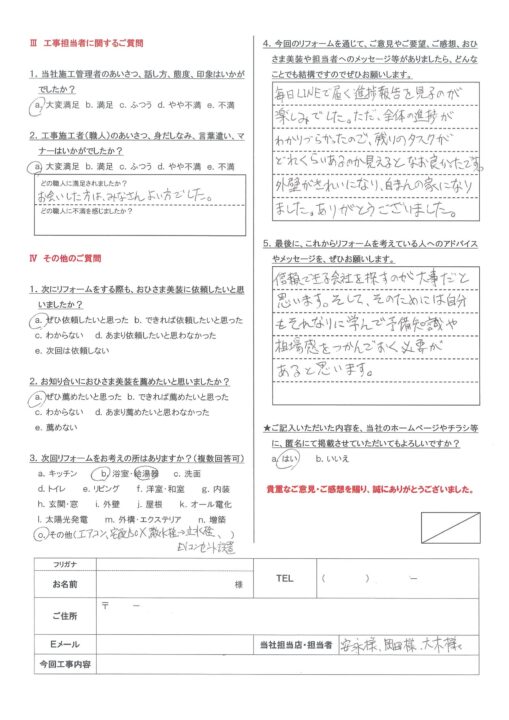 Ⅲ 工事担当者に関するご質問
1. 当社施工管理者のあいさつ、話し方、態度、印象はいかが
でしたか?
a. 大変満足 b. 満足 c. ふつう d. やや不満 e. 不満
2. 工事施工者(職人)のあいさつ、身だしなみ、言葉遣い、マ
ナーはいかがでしたか?
a. 大変満足 b. 満足 c. ふつう d. やや不満 e. 不満
どの職人に満足されましたか?
お会いした方は、みなさんよい方でした。
どの職人に不満を感じましたか?
Ⅳ その他のご質問
1. 次にリフォームをする際も、おひさま美装に依頼したいと思
いましたか?
a. ぜひ依頼したいと思った b. できれば依頼したいと思った
c. わからない d. あまり依頼したいと思わなかった
e. 次回は依頼しない
2. お知り合いにおひさま美装を薦めたいと思いましたか?
a. ぜひ薦めたいと思った b. できれば薦めたいと思った
c. わからない d. あまり薦めたいと思わなかった
e. 薦めない
3. 次回リフォームをお考えの所はありますか?(複数回答可)
a. キッチン b. 浴室・給湯器 c. 洗面
d. トイレ e. リビング f. 洋室・和室 g. 内装
h. 玄関・窓 i. 外壁 j. 屋根 k. オール電化
l. 太陽光発電 m. 外構・エクステリア n. 増築
o. その他(エアコン、宅配BOX 散水栓→立水栓、)
EVコンセント設置
4. 今回のリフォームを通じて、ご意見やご要望、ご感想、おひ
さま美装や担当者へのメッセージ等がありましたら、どんな
ことでも結構ですのでぜひお願いします。
毎日LINEで届く進捗報告を見るのが
楽しみでした。ただ、全体の進捗が
わかりづらかったので、残りのタスクが
どれくらいあるのか見えるとなお良かったです。
外壁がきれいになり、自まんの家になり
ました。ありがとうございました。
5. 最後に、これからリフォームを考えている人へのアドバイス
やメッセージを、ぜひお願いします。
信頼できる会社を探すのが大事だと
思います。そして、そのためには自分
もそれなりに学んで予備知識や
相場感をつかんでおく必要が
あると思います。
★ご記入いただいた内容を、当社のホームページやチラシ等
に、匿名にて掲載させていただいてもよろしいですか?
a. はい b. いいえ
貴重なご意見・ご感想を賜り、誠にありがとうございました。
フリガナ
お名前 様 TEL ( ) ー
ご住所 〒 ー
Eメール 当社担当店・担当者 安永様、岡田様、大木様
今回工事内容